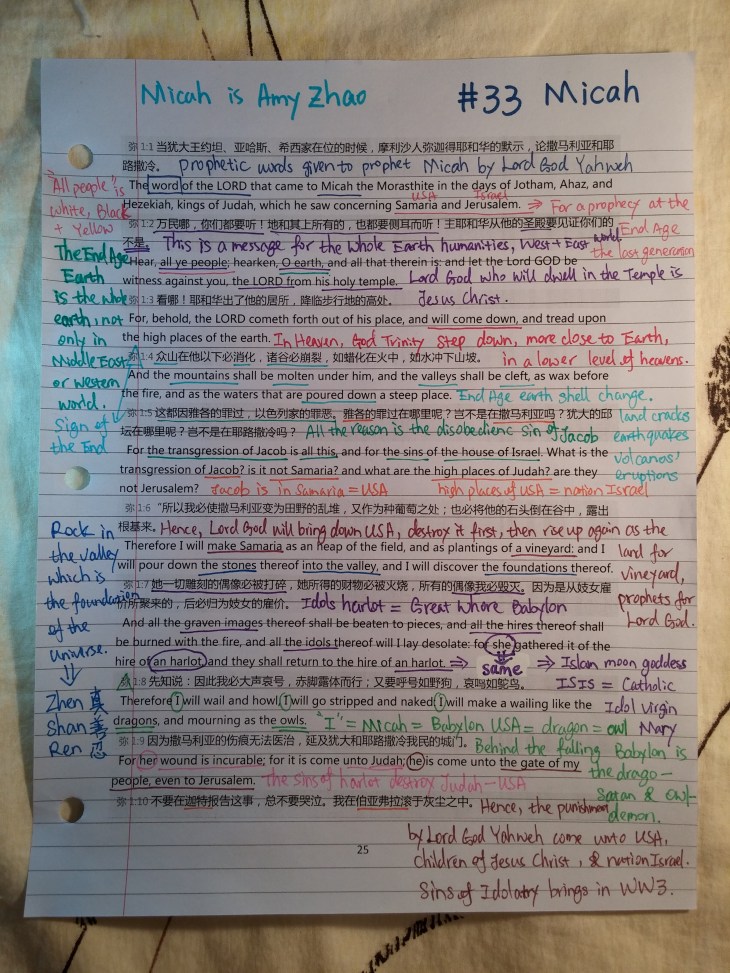 Micah is Amy Zhao
#33 Micah
弥 1:1 当犹大王约坦、亚哈斯、希西家在位的时候，摩利沙人弥迦得耶和华的默示，论撒马利亚和耶
路撒冷。 Prophetic words given to prophet Micah by Lord God Yahweh
The word of the LORD that came to Micah the Morasthite in the days of Jotham, Ahaz, and
USA Israel
Hezekiah, kings of Judah, which he saw concerning Samaria and Jerusalem. ⇒ For a prophecy at the
End Age
弥 1:2 万民哪，你们都要听！地和其上所有的，也都要侧耳而听！主耶和华从他的圣殿要见证你们的
不是。 This is a message for the whole Earth humanities, West + East world
the last generation
Hear, all ye people; hearken, O earth, and all that therein is: and let the Lord GOD be
witness against you, the LORD from his holy temple. Lord God who will dwell in the Temple is
Jesus Christ.
弥 1:3 看哪！耶和华出了他的居所，降临步行地的高处。
For, behold, the LORD cometh forth out of his place, and will come down, and tread upon
the high places of the earth. In Heaven, God Trinity step down, more close to Earth,
in a lower level of heavens.
弥 1:4 众山在他以下必消化，诸谷必崩裂，如蜡化在火中，如水冲下山坡。
And the mountains shall be molten under him, and the valleys shall be cleft, as wax before
the fire, and as the waters that are poured down a steep place. End Age earth shell change.
弥 1:5 这都因雅各的罪过，以色列家的罪恶。雅各的罪过在哪里呢？岂不是在撒马利亚吗？犹大的邱
坛在哪里呢？岂不是在耶路撒冷吗？ All the reason is the disobedienc sin of Jacob
For the transgression of Jacob is all this, and for the sins of the house of Israel. What is the
transgression of Jacob? is it not Samaria? and what are the high places of Judah? are they
not Jerusalem? Jacob is in Samaria = USA high places of USA = nation Israel
land cracks
earth quakes
volcanos'
eruptions
弥 1:6 “所以我必使撒马利亚变为田野的乱堆，又作为种葡萄之处；也必将他的石头倒在谷中，露出
根基来。 Hence, Lord God will bring down USA, destroy it first, then rise up again as the
land for
vineyard,
prophets for
Lord God.
Therefore I will make Samaria as an heap of the field, and as plantings of a vineyard: and I
will pour down the stones thereof into the valley, and I will discover the foundations thereof.
弥 1:7 她一切雕刻的偶像必被打碎，她所得的财物必被火烧，所有的偶像我必毁灭。因为是从妓女雇
价所聚来的，后必归为妓女的雇价。 Idols harlot = Great Whore Babylon
And all the graven images thereof shall be beaten to pieces, and all the hires thereof shall
be burned with the fire, and all the idols thereof will I lay desolate: for she gathered it of the
hire of an harlot, and they shall return to the hire of an harlot. ⇒ same ⇒ Islam moon goddess
ISIS = Catholic
Idol Virgin
Mary
弥 1:8 先知说：因此我必大声哀号，赤脚露体而行；又要呼号如野狗，哀鸣如鸵鸟。
Therefore I will wail and howl, I will go stripped and naked: I will make a wailing like the
dragons, and mourning as the owls. "I" = Micah = Babylon USA = dragon = owl
弥 1:9 因为撒马利亚的伤痕无法医治，延及犹大和耶路撒冷我民的城门。 Behind the falling Babylon is
the drago-
Satan & owl-
demon.
For her wound is incurable; for it is come unto Judah; he is come unto the gate of my
people, even to Jerusalem. The sins of harlot destroy Judah - USA
弥 1:10 不要在迦特报告这事，总不要哭泣。我在伯亚弗拉滚于灰尘之中。 Hence, the punishment
by Lord God Yahweh come unto USA,
children of Jesus Christ, & nation Israel.
Sins of Idolatry brings in WW3.
25
"All people" is
White, Black
+ Yellow
The End Age
Earth
is the whole
earth, not
only in
Middle East
or western
world.
Sign of
the End
Rock in
the valley
which is
the foundation
of the
universe.
⇓
Zhen 真
Shan 善
Ren 忍